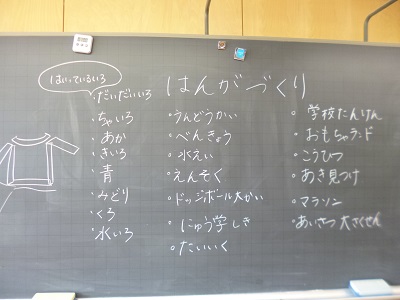 はんがづくり
はいているいろ
・だいだいいろ
・ちゃいろ
・あか
・きいろ
・青
・みどり
・くろ
・水いろ
・うんどうかい
・べんきょう
・水えい
・えんそく
・ドッジボール大かい
・にゅう学しき
・たいいく
・学校たんけん
・おもちゃランド
・こうひつ
・あき見つけ
・マラソン
・あいさつ大さくせん